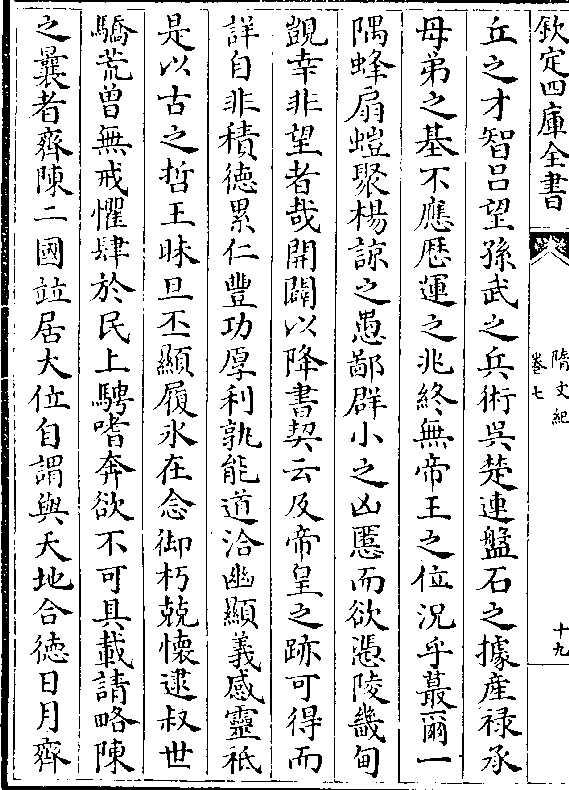 欽定四庫全書
隋文紀
卷七
十九
丘之才智呂望孫武之兵術吳楚連盤石之據産禄承
母弟之基不應歴運之兆終無帝王之位况乎蕞爾一
隅蜂扇螘聚楊諒之愚鄙群小之凶慝而欲憑陵畿甸
覬幸非望者哉開闢以降書契云及帝皇之跡可得而
詳自非積徳累仁豐功厚利孰能道洽幽顯義感靈祗
是以古之哲王昧旦丕顯履氷在念御朽兢懐逮叔世
驕荒曽無戒懼肆於民上騁嗜奔欲不可具載請略陳
之曩者齊陳二國竝居大位自謂與天地合徳日月齊